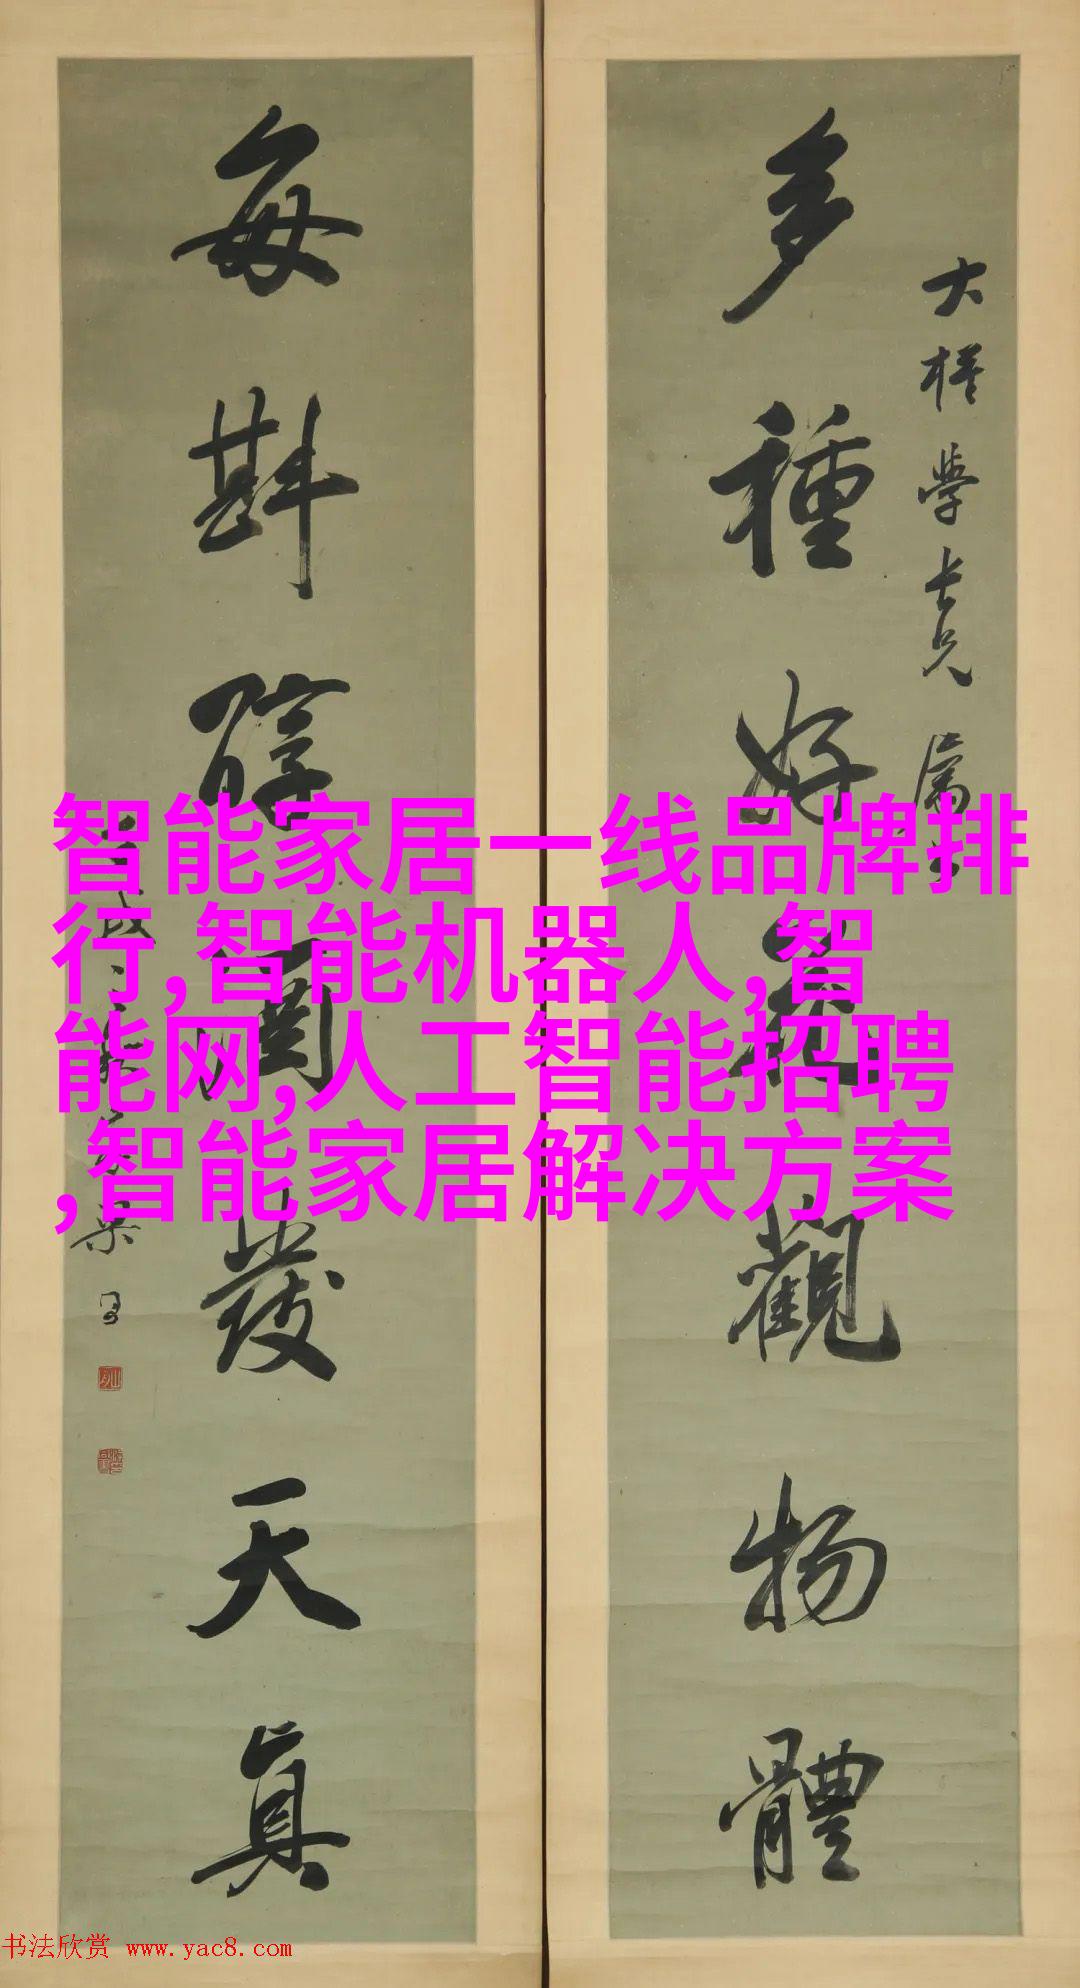 多種好花觀物體
大
學長兄
屬
每斟醇酒發天真
智能家居一线品牌排
行,智能机器人,智
能网,人工智能招聘
,智能家居解决方案
书法欣赏 www.yac8.com